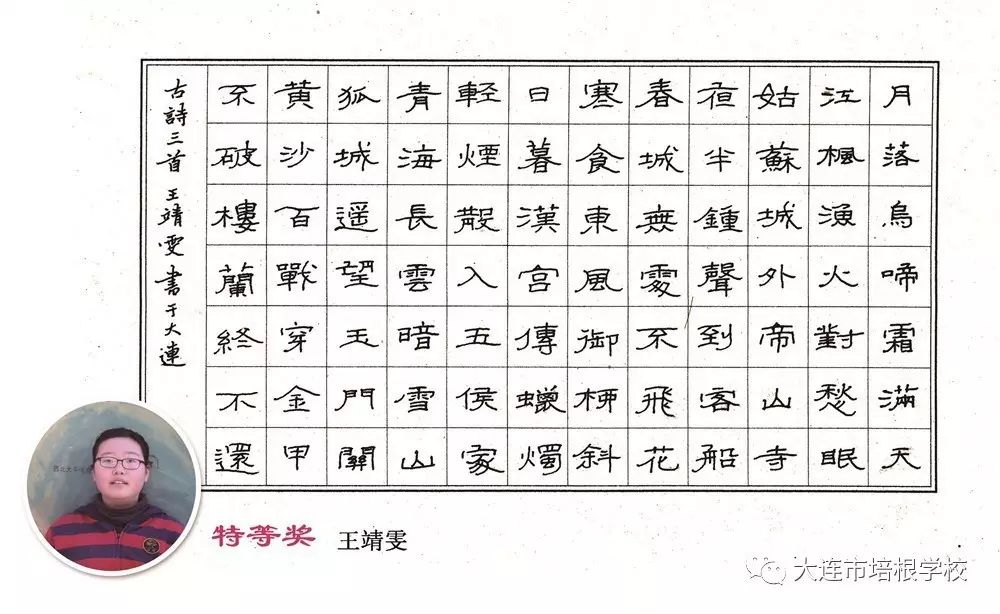 月落烏啼霜滿天
江楓漁火對愁眠
姑蘇城外帝山寺
夜半鍾聲到客船
春城無處不飛花
寒食東風御柳斜
日暮漢宮傳蠟燭
輕煙散入五侯家
青海長雲暗雪山
孤城遥望玉門關
黄沙百戰穿金甲
不破樓蘭終不還
古詩三首 王靖雯書于大連
特等奖 王靖雯
大连市培根学校